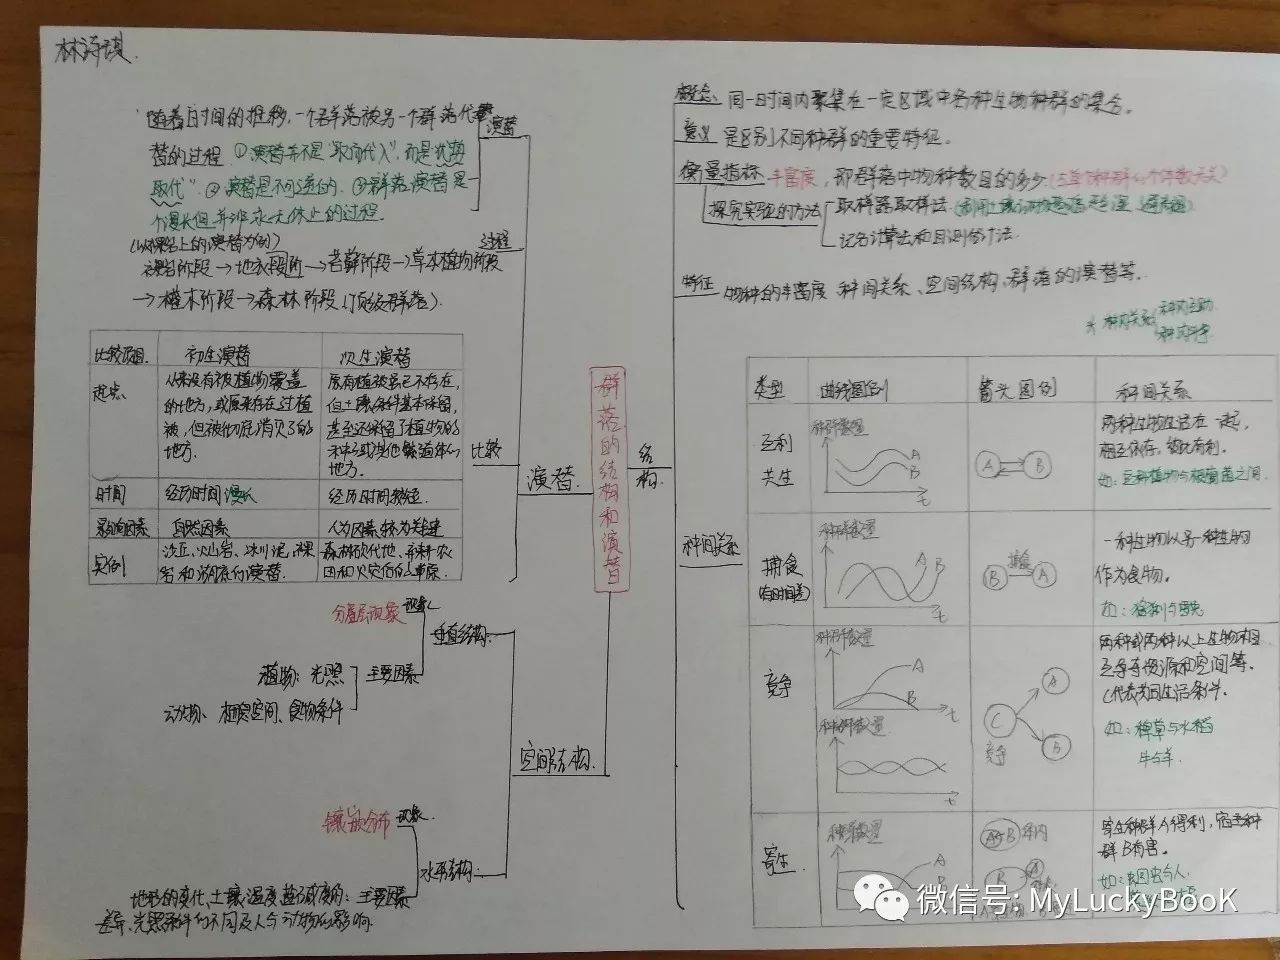 林诗琪.
随着时间的推移,一个群落被另一个群落代
替的过程 ①演替并不是"取而代入",而是"优势
取代" ②演替是不可逆的. ③群落演替是一
个漫长但并非永无休止的过程.
演替
过程
(以裸岩上的演替为例)
裸岩阶段→地衣阶段→苔藓阶段→草本植物阶段
→灌木阶段→森林阶段(顶级群落).
初生演替 次生演替
起点
从来没有被植物覆盖
的地方,或原来存在过植
被,但被彻底消灭了的
地方.
原有植被虽已不存在,
但土壤条件基本保留,
甚至还保留了植物的
种子或其他繁殖体的
地方.
时间 经历时间漫长 经历时间较短.
影响因素 自然因素 人为因素较为关键
实例
沙丘、火山岩、冰川泥、裸
岩和湖底的演替.
森林砍伐地、弃耕农
田和火灾后的草原.
比较
演替.
群落的结构和演替
结构.
分层现象 现象
垂直结构.
植物:光照
动物:栖息空间、食物条件
主要因素
空间结构.
镶嵌分布 现象.
水平结构.
地形的变化、土壤湿度盐碱度的
差异、光照条件的不同及人与动物的影响.
主要因素
概念 同一时间内聚集在一定区域中各种生物种群的集合。
意义 是区别不同种群的重要特征。
衡量指标 丰富度,即群落中物种数目的多少
探究实验的方法
取样器取样法
记名计算法和目测估计法.
特征 物种的丰富度、种间关系、空间结构、群落的演替等.
种内关系
种内互助
种内斗争
种间关系
类型 曲线图例 箭头图例 种间关系
互利
共生
种群数量
A
B
t
A B
两种生物生活在一起,
相互依存,彼此有利.
如:豆科植物与根瘤菌之间.
捕食
(有时间差)
种群数量
A B
t
B 捕食 A
一种生物以另一种生物
作为食物。
竞争
种群数量
A
B
t
种群数量
t
C
A
B
竞争
两种或两种以上生物相
互争夺资源和空间等.
C代表共同生活条件.
如:稗草与水稻
牛与羊.
寄生
种群数量
A
B
寄生种群A得利,宿主种
群B有害.
微信号: MyLuckyBooK